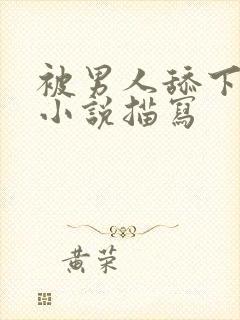 被男人舔下
小說描寫
黃荣